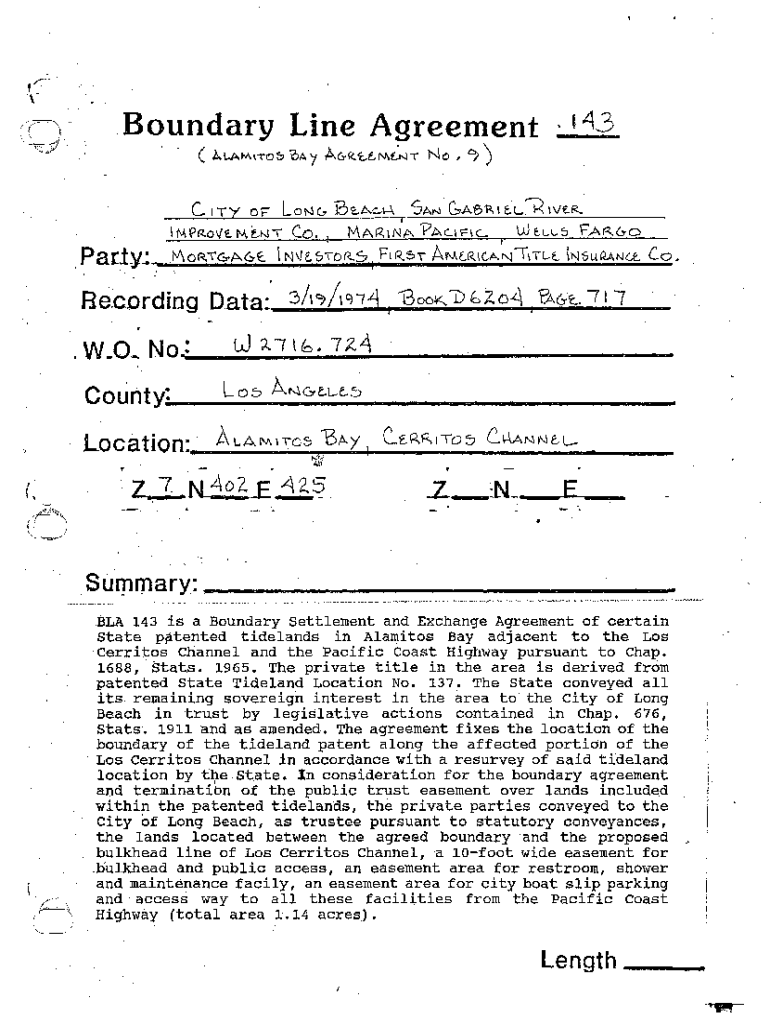 Boundary Line Agreement 143
(ALAMITOS BAY AGREEMENT NO. 9)
CITY OF LONG BEACH, SAN GABRIEL RIVER
IMPROVEMENT CO., MARINA PACIFIC, WELLS FARGO
Party: MORTGAGE INVESTORS, FIRST AMERICAN TITLE INSURANCE CO.
Recording Data: 3/19/1974, BOOK D6204, PAGE 717
W.O. No.: W 2716.724
County: LOS ANGELES
Location: ALAMITOS BAY, CERRITOS CHANNEL
Z 7 N 402 E 425 Z N E
Summary:
BLA 143 is a Boundary Settlement and Exchange Agreement of certain
State patented tidelands in Alamitos Bay adjacent to the Los
Cerritos Channel and the Pacific Coast Highway pursuant to Chap.
1688, Stats. 1965. The private title in the area is derived from
patented State Tideland Location No. 137. The State conveyed all
its remaining sovereign interest in the area to the City of Long
Beach in trust by legislative actions contained in Chap. 676,
Stats. 1911 and as amended. The agreement fixes the location of the
boundary of the tideland patent along the affected portion of the
Los Cerritos Channel in accordance with a resurvey of said tideland
location by the State. In consideration for the boundary agreement
and termination of the public trust easement over lands included
within the patented tidelands, the private parties conveyed to the
City of Long Beach, as trustee pursuant to statutory conveyances,
the lands located between the agreed boundary and the proposed
bulkhead line of Los Cerritos Channel, a 10-foot wide easement for
bulkhead and public access, an easement area for restroom, shower
and maintenance facily, an easement area for city boat slip parking
and access way to all these facilities from the Pacific Coast
Highway (total area 1.14 acres).
Length